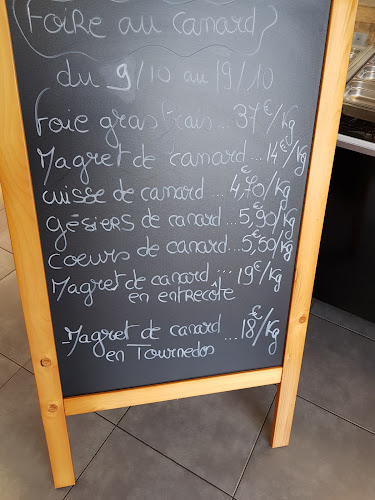 Foire au Canard
du 9/10 au 19/10
foie gras frais... 37€/Kg
Magret de canard... 14€/Kg
cuisse de canard... 4,€70/Kg
gésiers de canard... 5,€90/Kg
coeurs de canard... 5,€60/Kg
Magret de canard... 19€/Kg
en entrecôte
Magret de canard... 18€/Kg
en Tournedos